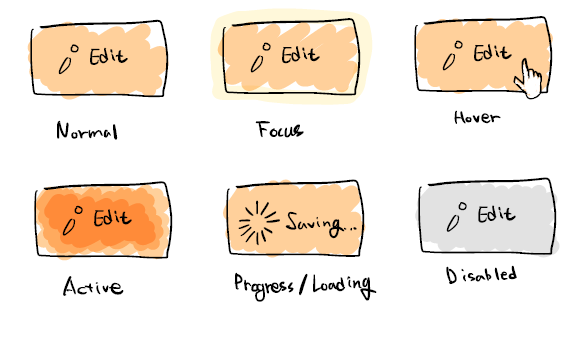 Edit
Normal
Edit
Focus
Edit
Hover
Edit
Active
Saving...
Progress/Loading
Edit
Disabled